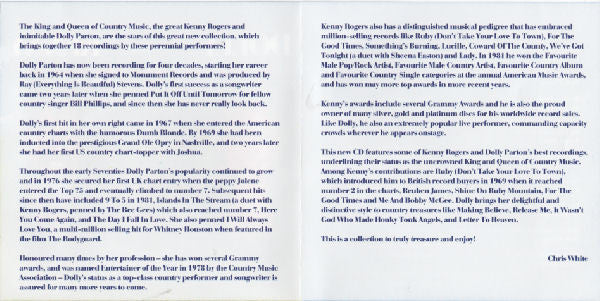 The King and Queen of Country Music, the great Kenny Rogers and
inimitable Dolly Parton, are the stars of this great new collection, which
brings together 18 recordings by these perennial performers!
Dolly Parton has now been recording for four decades, starting her career
back in 1964 when she signed to Monument Records and was produced by
Ray (Everything Is Beautiful) Stevens. Dolly's first success as a songwriter
came two years later when she penned Put It Off Until Tomorrow for fellow
country singer Bill Phillips, and since then she has never really look back.
Dolly's first hit in her own right came in 1967 when she entered the American
country charts with the humorous Dumb Blonde. By 1969 she had been
inducted into the prestigious Grand Ole Opry in Nashville, and two years later
she had her first US country chart-topper with Joshua.
Throughout the early Seventies Dolly Parton's popularity continued to grow
and in 1976 she secured her first UK chart entry when the peppy Jolene
entered the Top 75 and eventually climbed to number 7. Subsequent hits
since then have included 9 To 5 in 1981, Islands In The Stream (a duet with
Kenny Rogers, penned by The Bee Gees) which also reached number 7, Here
You Come Again, and The Day I Fall In Love. She also penned I Will Always
Love You, a multi-million selling hit for Whitney Houston when featured in
the film The Bodyguard.
Honoured many times by her profession – she has won several Grammy
awards, and was named Entertainer of the Year in 1978 by the Country Music
Association – Dolly's status as a top-class country performer and songwriter is
assured for many more years to come.
Kenny Rogers also has a distinguished musical pedigree that has embraced
million-selling records like Ruby (Don't Take Your Love To Town), For The
Good Times, Something's Burning, Lucille, Coward Of The County, We've Got
Tonight (a duet with Sheena Easton) and Lady. In 1981 he won the Favourite
Male Pop/Rock Artist, Favourite Male Country Artist, Favourite Country Album
and Favourite Country Single categories at the annual American Music Awards,
and has won may more top awards in more recent years.
Kenny's awards include several Grammy Awards and he is also the proud
owner of many silver, gold and platinum discs for his worldwide record sales.
Like Dolly, he also an extremely popular live performer, commanding capacity
crowds wherever he appears onstage.
This new CD features some of Kenny Rogers and Dolly Parton's best recordings,
underlining their status as the uncrowned King and Queen of Country Music.
Among Kenny's contributions are Ruby (Don't Take Your Love To Town),
which introduced him to British record buyers in 1969 when it reached
number 2 in the charts, Reuben James, Shine On Ruby Mountain, For The
Good Times and Me And Bobby McGee. Dolly brings her delightful and
distinctive style to country treasures like Making Believe, Release Me, It Wasn't
God Who Made Honky Tonk Angels, and Letter To Heaven.
This is a collection to truly treasure and enjoy!
Chris White